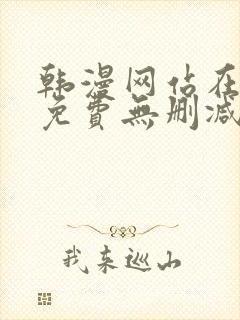 韩漫网站在
免費無刪减
我来巡山